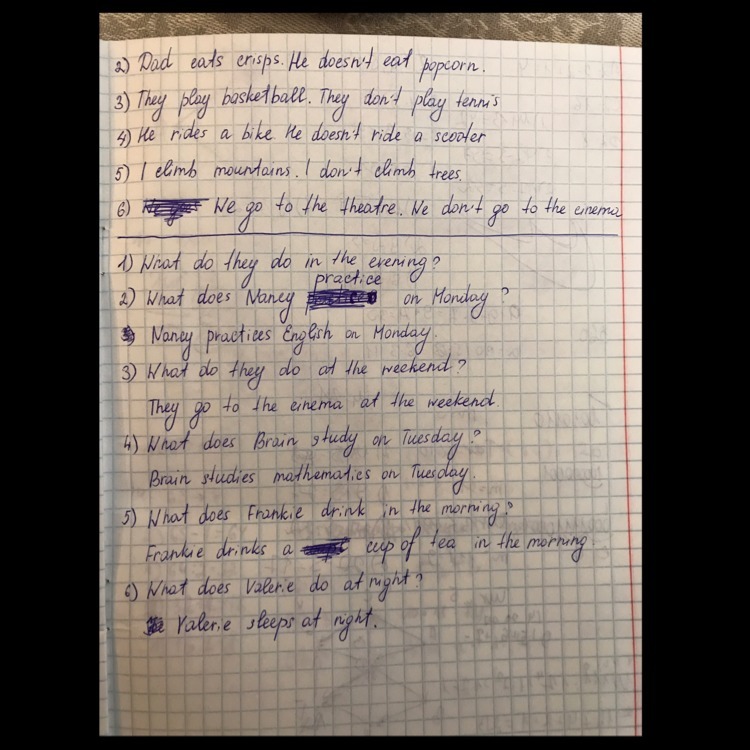 2) Dad eats crisps. He doesn't eat popcorn.
3) They play basketball. They don't play tennis
4) He rides a bike He doesn't ride a scooter
5) I climb mountains. I don't climb trees.
6) We go to the theatre. We don't go to the cinema
1) What do they do in the evening?
practice
2) What does Nancy on Monday?
Nancy practices English on Monday.
3) What do they do at the weekend?
They go to the cinema at the weekend.
4) What does Brain study on Tuesday?
Brain studies mathematics on Tuesday.
5) What does Frankie drink in the morning?
Frankie drinks a cup of tea in the morning.
6) What does Valerie do at night?
Valerie sleeps at night.